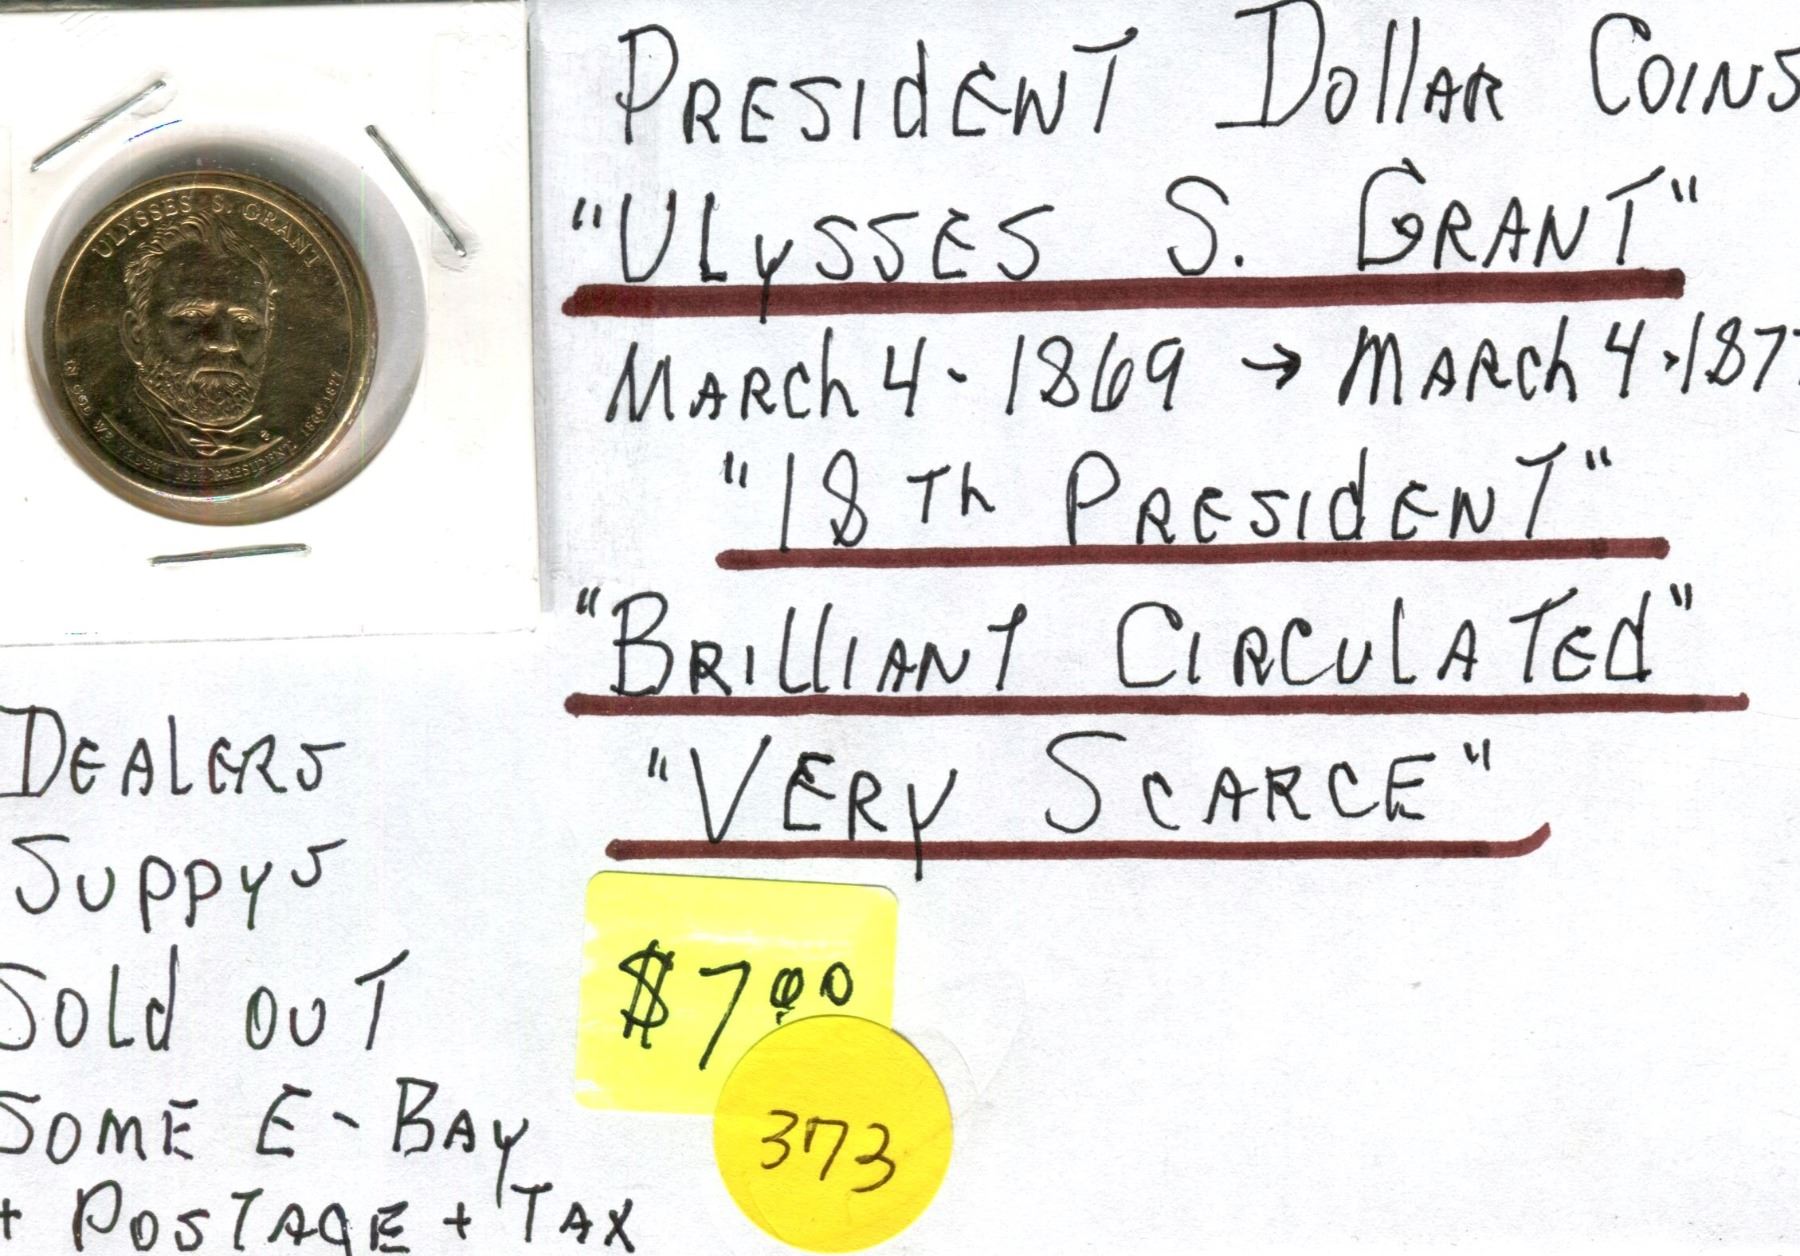 PRESIDENT DOLLAR COINS
"ULYSSES S. GRANT"
MARCH 4 - 1869 → MARCH 4 - 1877
"18TH PRESIDENT"
"BRILLIANT CIRCULATED"
"VERY SCARCE"
ULYSSES S. GRANT
IN GOD WE TRUST 18th PRESIDENT 1869-1877
DEALERS
SUPPYS
SOLD OUT
SOME E-BAY
+ POSTAGE + TAX
$7.00
373